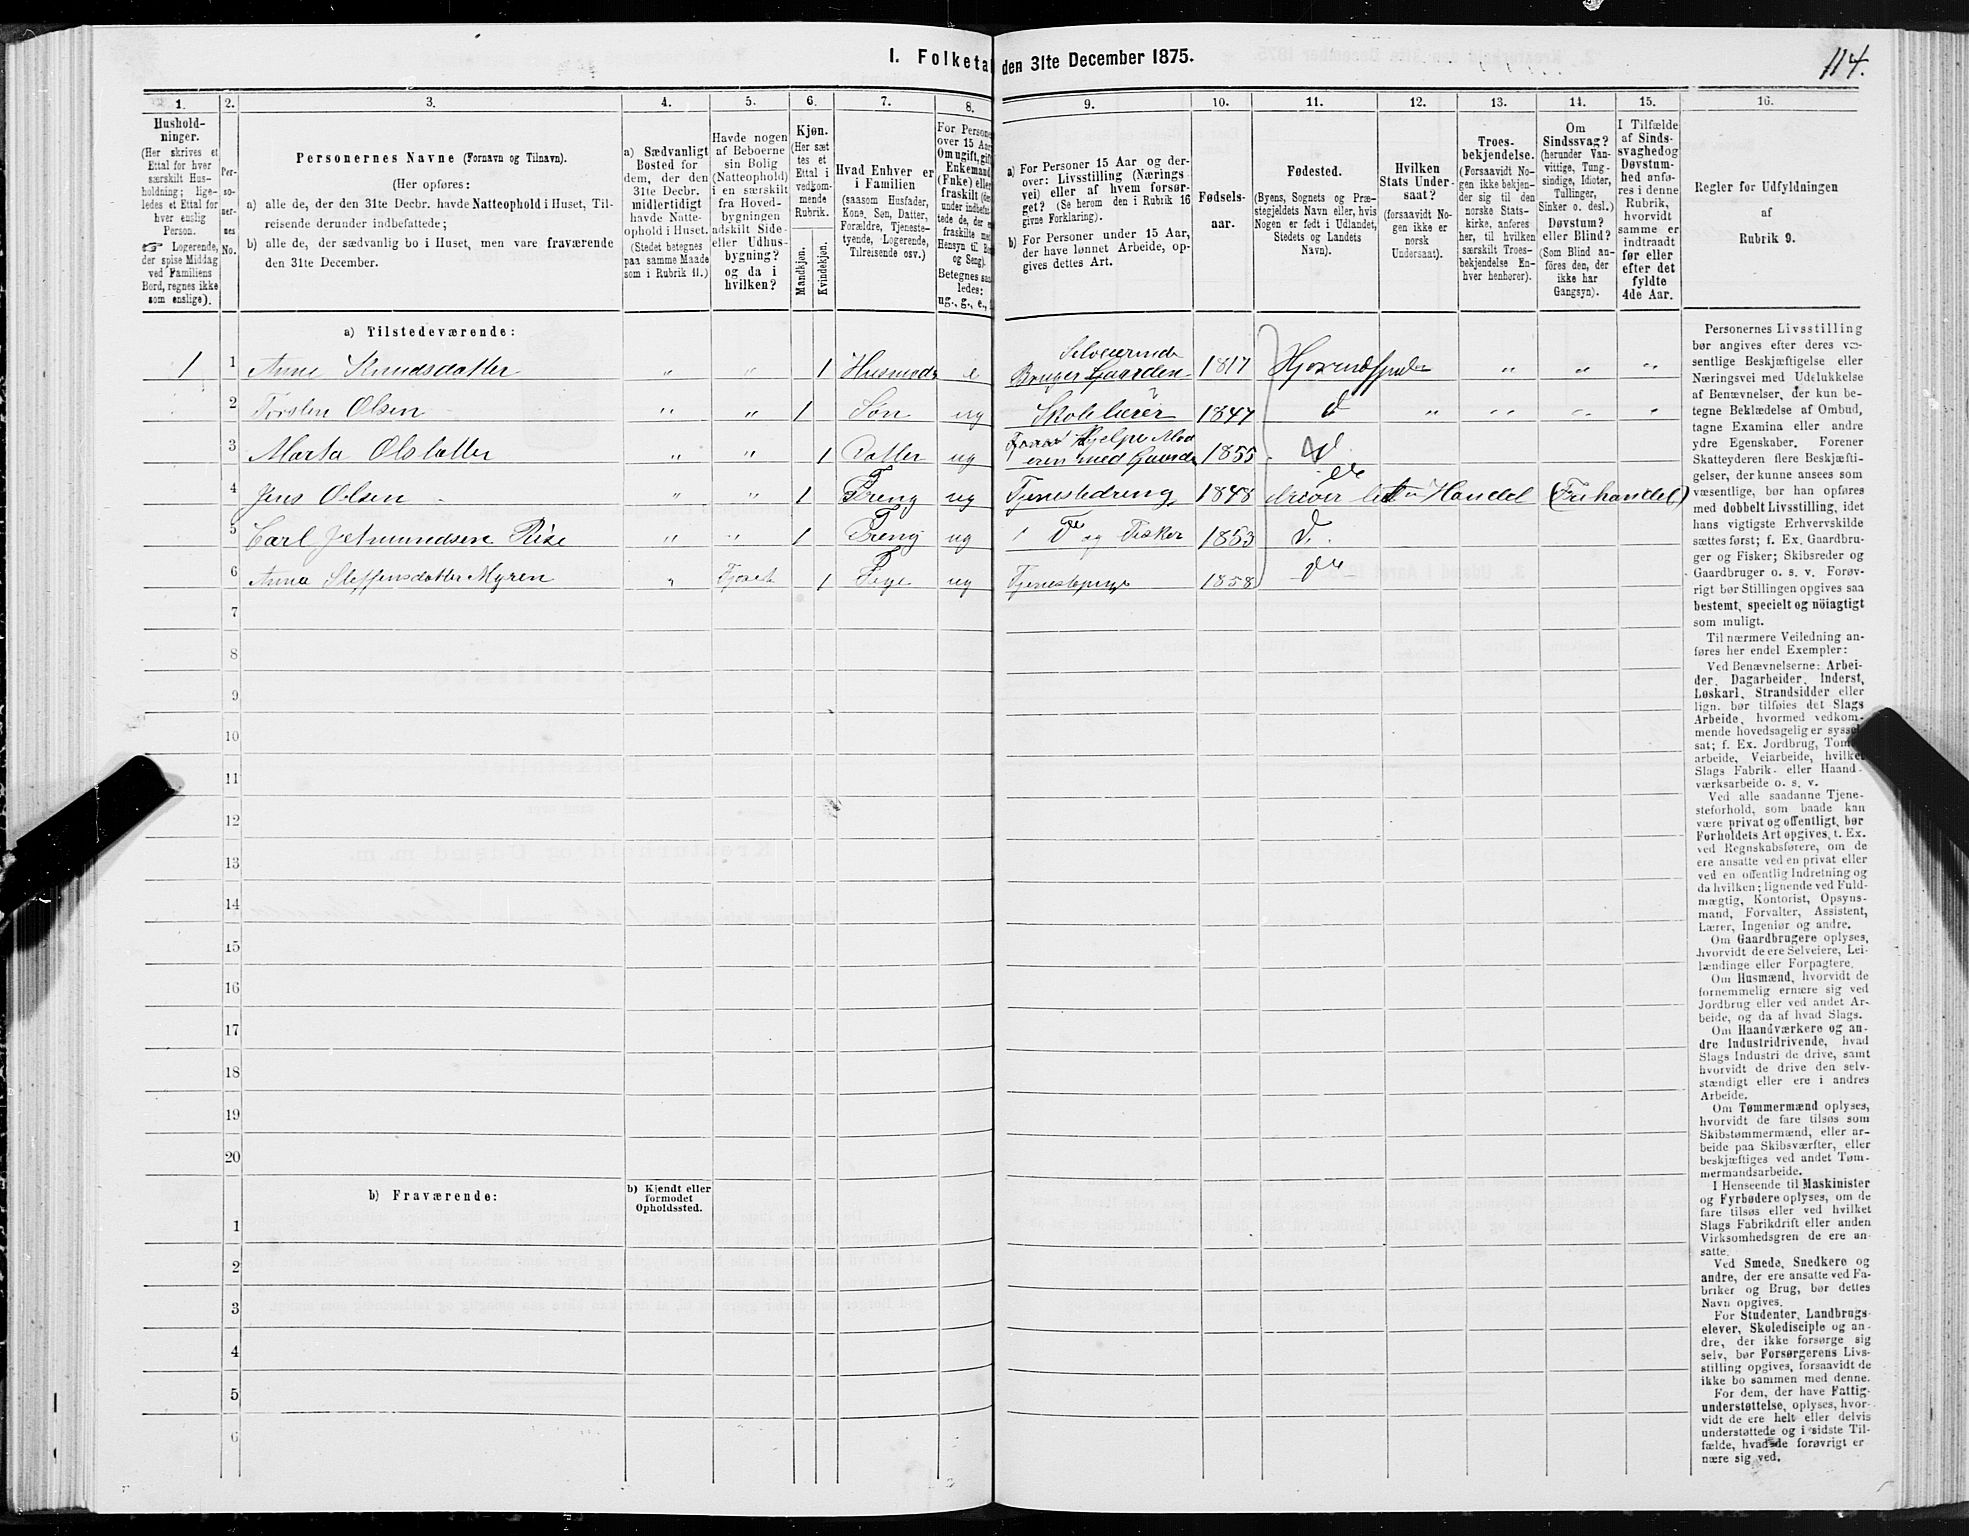 I. Folketal den 31te December 1875.
114.
1.
2.
3.
4.
5.
6.
7.
8.
9.
10.
11.
12.
13.
14.
15.
16.
Hushold-
ninger.
(Her skrives et
Ettal for hver
særskilt Hus-
holdning; lige-
ledes et Ettal for
hver enslig
Person.
☞ Logerende,
der spise Middag
ved Familiens
Bord, regnes ikke
som enslige).
Per-
so-
ner-
nes
No.
Personernes Navne (Fornavn og Tilnavn).
(Her opføres:
a) alle de, der den 31te Decbr. havde Natteophold i Huset, Til-
reisende derunder indbefattede;
b) alle de, der sædvanlig bo i Huset, men vare fraværende
den 31te December.
a) Sædvanligt
Bosted for
dem, der den
31te Decbr.
midlertidigt
havde Natte-
ophold i Huset.
(Stedet betegnes
paa samme Maade
som i Rubrik 11.)
Havde nogen
af Beboerne
sin Bolig
(Natteophold)
i en særskilt
fra Hoved-
bygningen
adskilt Side-
eller Udhus-
bygning?
og da i
hvilken?
Kjøn.
(Her sæt
tes et
Ettal i
vedkom-
mende
Rubrik.
Mandkjøn.
Kvindekjøn.
Hvad Enhver er
i Familien
(saasom Husfader,
Kone, Søn, Datter,
Forældre, Tjeneste-
tyende, Logerende,
Tilreisende osv.)
For Persone
over 15 Aar
Om ugift, gift
Enkemand
(Enke) elle
fraskilt (der
under indbefat
tede de, der er
fraskilte med
Hensyn til Bor
og Seng).
Betegnes saa
ledes:
ug., g., e.,
a) For Personer 15 Aar og der-
over: Livsstilling (Nærings-
vei) eller af hvem forsør-
get? (Se herom den i Rubrik 16
givne Forklaring).
b) For Personer under 15 Aar,
der have lønnet Arbeide, op-
gives dettes Art.
Fødsels-
aar.
Fødested.
(Byens, Sognets og Præ-
stegjeldets Navn eller, hvis
Nogen er født i Udlandet,
Stedets og Landets
Navn).
Hvilken
Stats Under-
saat?
(forsaavidt No-
gen ikke er
norsk
Undersaat).
Troes-
bekjendelse.
(Forsaavidt No-
gen ikke bekjen-
der sig til den
norske Stats-
kirke, anføres
her, til hvilken
særskilt Troes-
bekjendelse En-
hver henhører).
Om
Sindssvag?
(herunder Van-
vittige, Tung-
sindige, Idioter,
Tullinger,
Sinker o. desl.)
Døvstum?
eller Blind?
(Som Blind an-
føres den, der
ikke har
Gangsyn).
I Tilfælde
af Sinds-
svaghed og
Døvstum-
hed anfø-
res i denne
Rubrik,
hvorvidt
samme er
indtraadt
før eller
efter det
fyldte
4de Aar.
Regler for Udfyldningen
af
Rubrik 9.
a) Tilstedeværende:
1 1 Anne Knudsdatter " " 1 Husmoder e Selveierinde Bruger Gaarden 1817 " " "
2 Torsten Olsen " " 1 Søn ug Skolelærer 1847 d " " " "
3 Marta Olsdatter " " 1 Datter ug Hjelper Mod
eren med Gaarde 1855 d
4 Jens Olsen " " 1 Dreng ug Tjenestedreng 1848 do driver lidt Handel (Fæhandel)
5 Carl Amundsen Rise " " 1 Dreng ug Do og Fisker 1853 Do
6 Anna Steffensdatter Myren " 1 Pige ug Tjenestepige 1858 do
7
8
9
10
11
12
13
14
15
16
17
18
19
20
b) Fraværende:
b) Kjendt eller
formodet
Opholdssted.
1
2
3
4
5
6
Personernes Livsstilling
bør angives efter deres væ-
sentlige Beskjæftigelse eller
Næringsvei med Udelukkelse
af Benævnelser, der kun be-
tegne Beklædelse af Ombud,
tagne Examina eller andre
ydre Egenskaber. Forener
Skatteyderen flere Beskjæfti-
gelser, der kunne ansees som
væsentlige, bør han opføres
med dobbelt Livsstilling, idet
hans vigtigste Erhvervskilde
sættes først; f. Ex. Gaardbru-
ger og Fisker; Skibsreder og
Gaardbruger o. s. v. Forøv-
rigt bør Stillingen opgives saa
bestemt, specielt og nöiagtigt
som muligt.
Til nærmere Veiledning an-
føres her endel Exempler:
Ved Benævnelserne: Arbei-
der, Dagarbeider, Inderst,
Løskarl, Strandsidder eller
lign. bør tilføies det Slags
Arbeide, hvormed vedkom-
mende hovedsagelig er syssel-
sat; f. Ex. Jordbrug, Tømm-
arbeide, Veiarbeide, hvilket
Slags Fabrik- eller Haand-
værksarbeide o. s. v.
Ved alle saadanne Tjene-
steforhold, som baade kan
være privat og offentligt, bør
Forholdets Art opgives, t. Ex.
ved Regnskabsførere, om de
ere ansatte ved en privat eller
ved en offentlig Indretning og
da hvilken; lignende ved Fuld-
mægtig, Kontorist, Opsyns-
mand, Forvalter, Assistent,
Lærer, Ingeniør og andre.
Om Gaardbrugere oplyses,
hvorvidt de ere Selveiere, Lei-
lændinge eller Forpagtere.
Om Husmænd, hvorvidt de
fornemmelig ernære sig ved
Jordbrug eller ved andet Ar-
beide, og da af hvad Slags.
Om Haandværkere og an-
dre Industridrivende, hvad
Slags Industri de drive, samt
hvorvidt de drive den selv-
stændigt eller ere i andres
Arbeide.
Om Tømmermænd oplyses,
hvorvidt de fare tilsøs som
Skibstømmermænd, eller ar-
beide paa Skibsværfter, eller
beskjæftiges ved andet Tøm-
mermandsarbeide.
I Henseende til Maskinister
og Fyrbødere oplyses, om de
fare tilsøs eller ved hvilket
Slags Fabrikdrift eller anden
Virksomhedsgren de ere an-
satte.
Ved Smede, Snedkere og
andre, der ere ansatte ved Fa-
briker og Brug, bør dettes
Navn opgives.
For Studenter, Landbrugs-
elever, Skoledisciple og an-
dre, der ikke forsørge sig
selv, bør Forsørgerens Livs-
stilling opgives, forsaavidt de
ikke bo sammen med denne.
For dem, der have Fattig-
understøttelse, oplyses, hvor-
vidt de ere helt eller delvis
understøttede og i sidste Til-
fælde, hvad de forøvrigt er
nære sig ved.